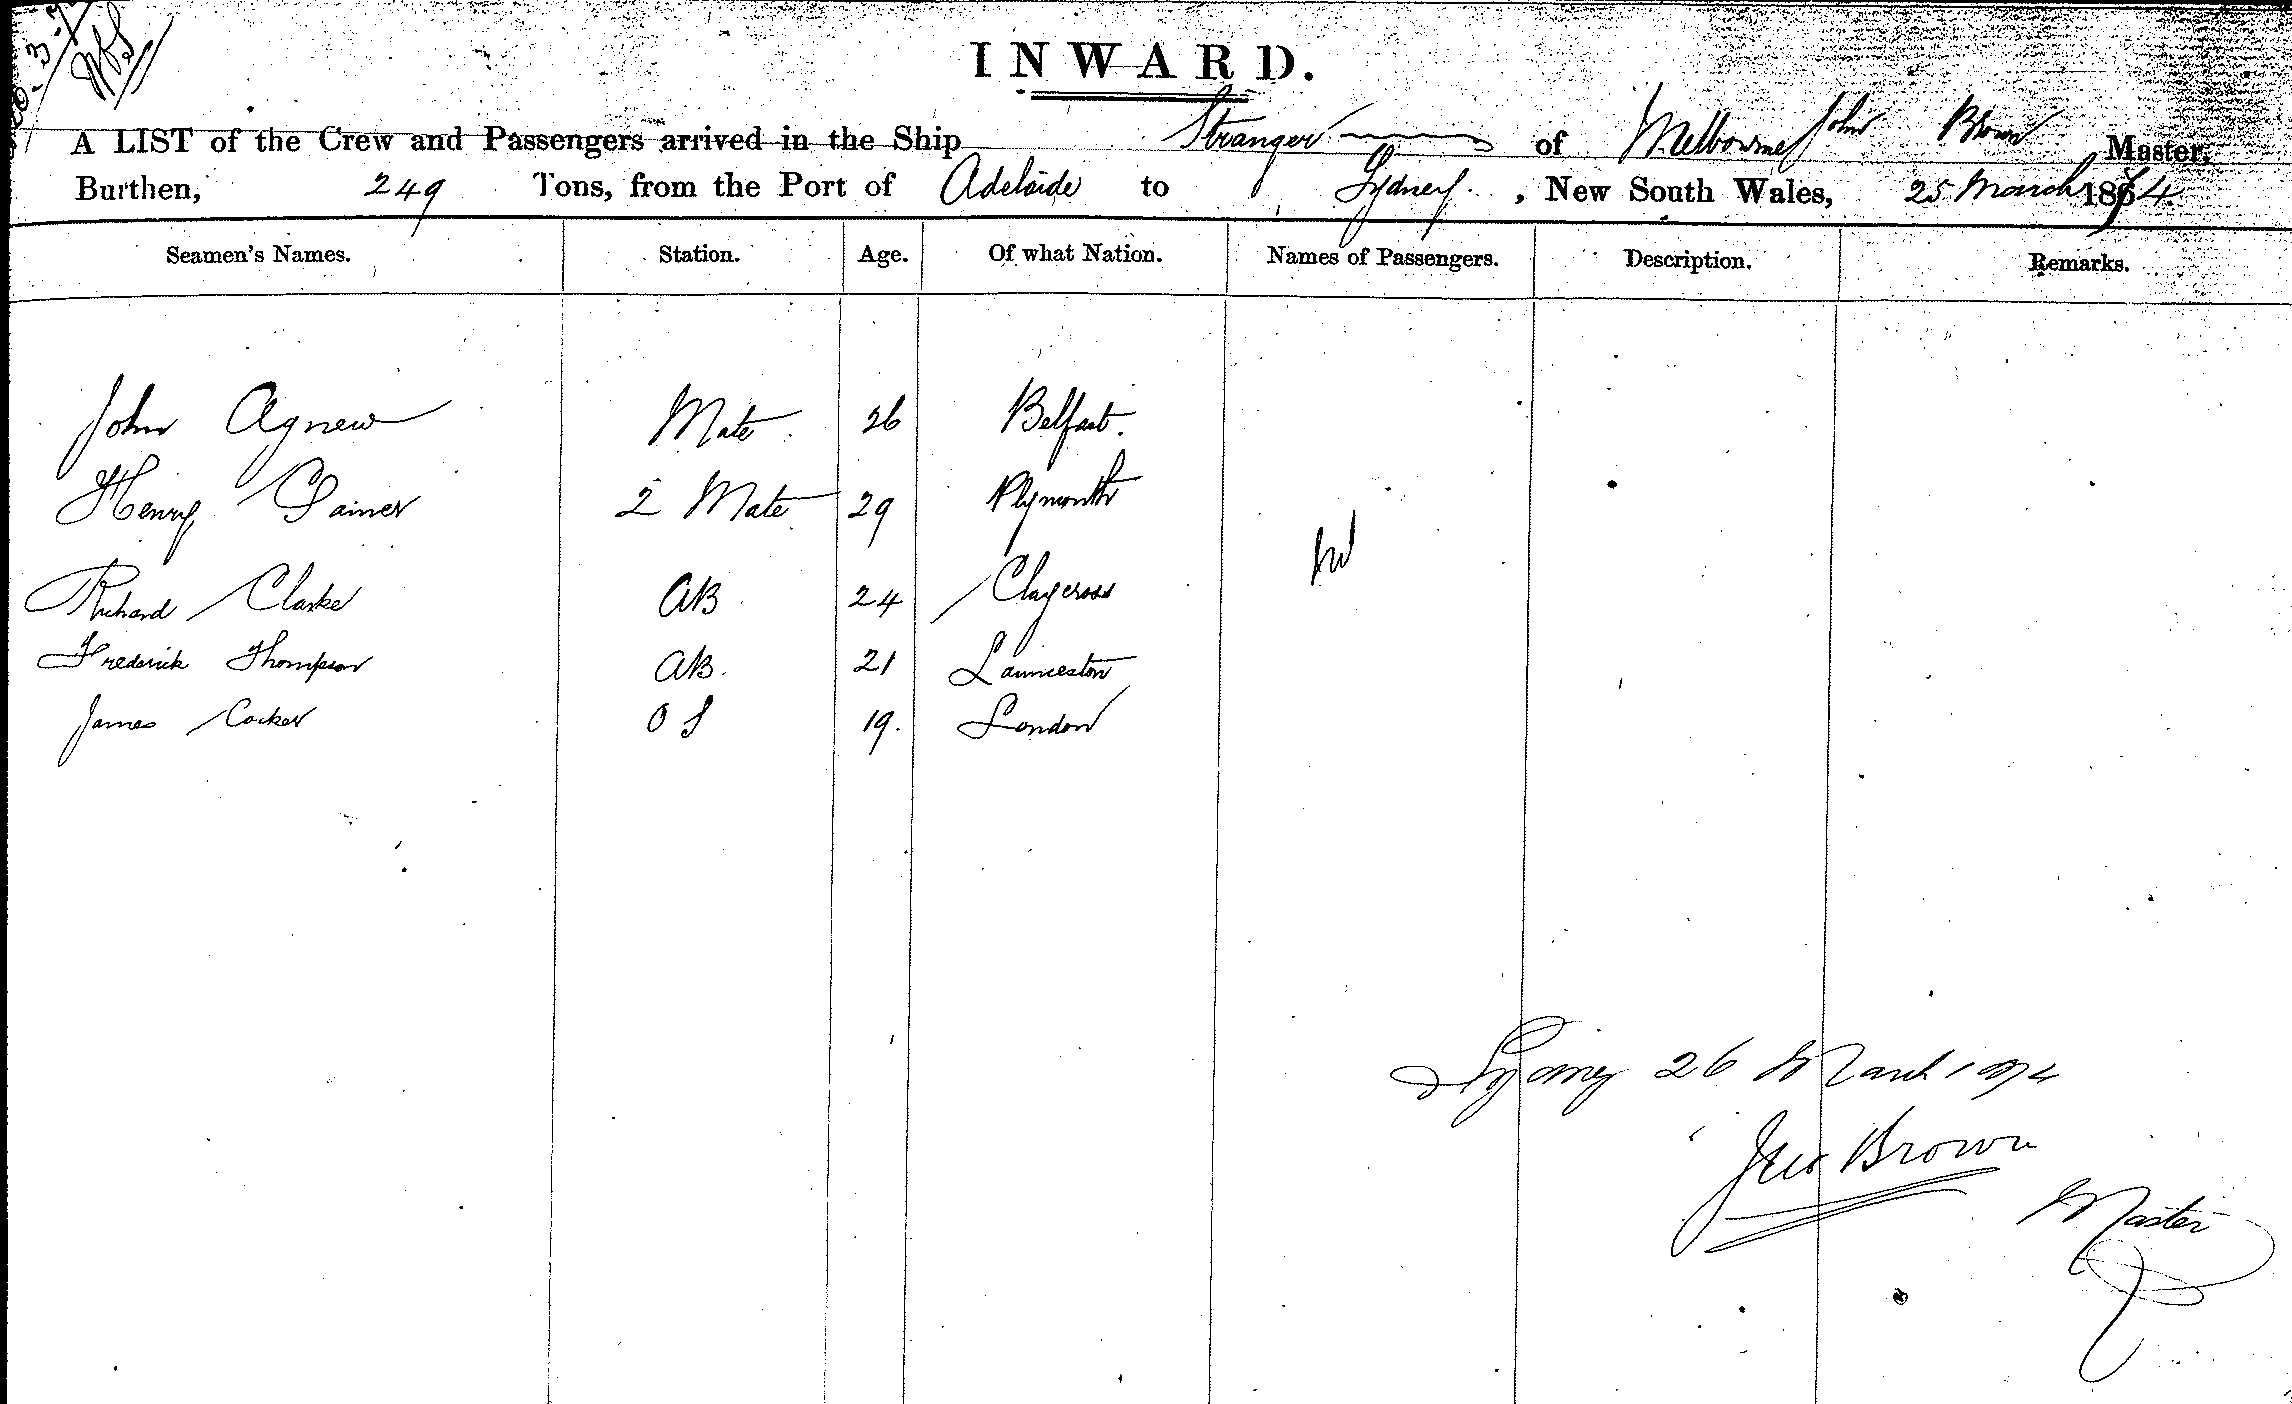 INWARD.
A LIST of the Crew and Passengers arrived in the Ship Stranger of Melbourne John Brown Master,
Burthen, 249 Tons, from the Port of Adelaide to Sydney. , New South Wales, 25 March 1874.
Seamen's Names. Station. Age. Of what Nation. Names of Passengers. Description. Remarks.
John Agnew Mate 26 Belfast.
Henry 2 Mate 29 Plymouth
Richard Clarke AB 24 Claycross
Frederick Thompson AB. 21 Launceston
James Cocker O S 19. London
Sydney 26 March 1874
Jno Brown
Master